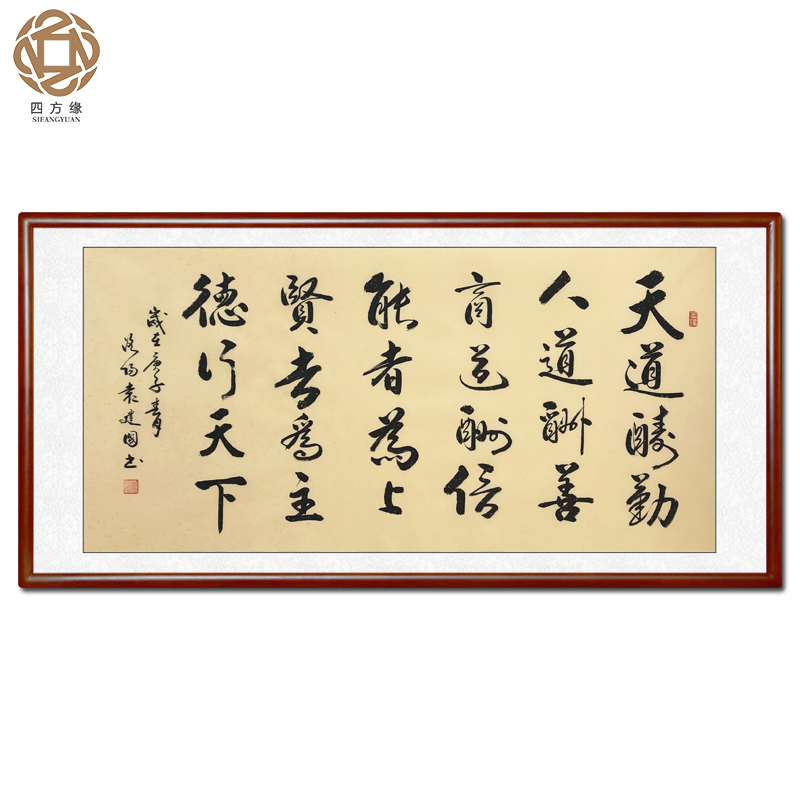 四方缘
SIFANGYUAN
天道醻勤
人道酬善
商道酬信
能者為上
賢者爲主
德行天下
歲在庚子春月
洛陽袁建國书